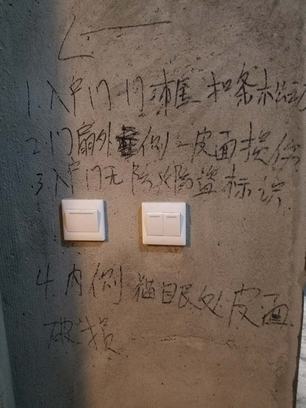 1.入户门门漆 扣条松动
2.门扇外侧 皮面损伤
3.入户门无防火防盗标识
4.内侧猫眼处皮面
破损